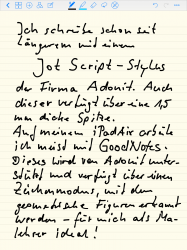 Ich schreibe schon seit
längerem mit einem
Jot Script-Stylus
der Firma Adonit. Auch
dieser verfügt über eine 1,5
mm dicke Spitze.
Auf meinem iPad Air arbeite
ich meist mit GoodNotes.
Dieses wird von Adonit unter-
stützt und verfügt über einen
Zeichenmodus, mit dem
geometrische Figuren erkannt
werden - für mich als Ma-
lehrer ideal!